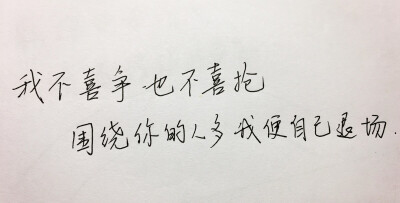 我不喜争 也不喜抢
围绕你的人多我便自己退场.